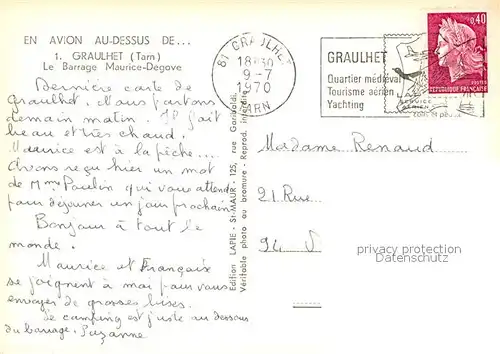 EN AVION AU-DESSUS DE...
1. GRAULHET (Tarn)
Le Barrage Maurice-Degove
Dernière carte de
Graulhet. Nous partons
demain matin. Il fait
beau et très chaud.
Maurice est à la pêche...
Avons reçu hier un mot
de Mme Poulin qui vous attend
pour déjeuner un jour prochain
Bonjour à tout le
monde.
Maurice et Françoise
se joignent à moi pour vous
envoyer de grosses bises.
Le camping est juste au dessous
du barrage. Suzanne
Edition LAPIE - St-MAUR - 125, rue Garibaldi
Véritable photo au bromure - Reprod. interdite
81 GRAULHET
18H30
9-7
1970
TARN
GRAULHET
Quartier médiéval
Tourisme aérien
Yachting
SERVICE
AÉRIEN
0,40
POSTES
REPUBLIQUE FRANÇAISE
Madame Renaud
21 Rue
94 S
privacy protection
Datenschutz